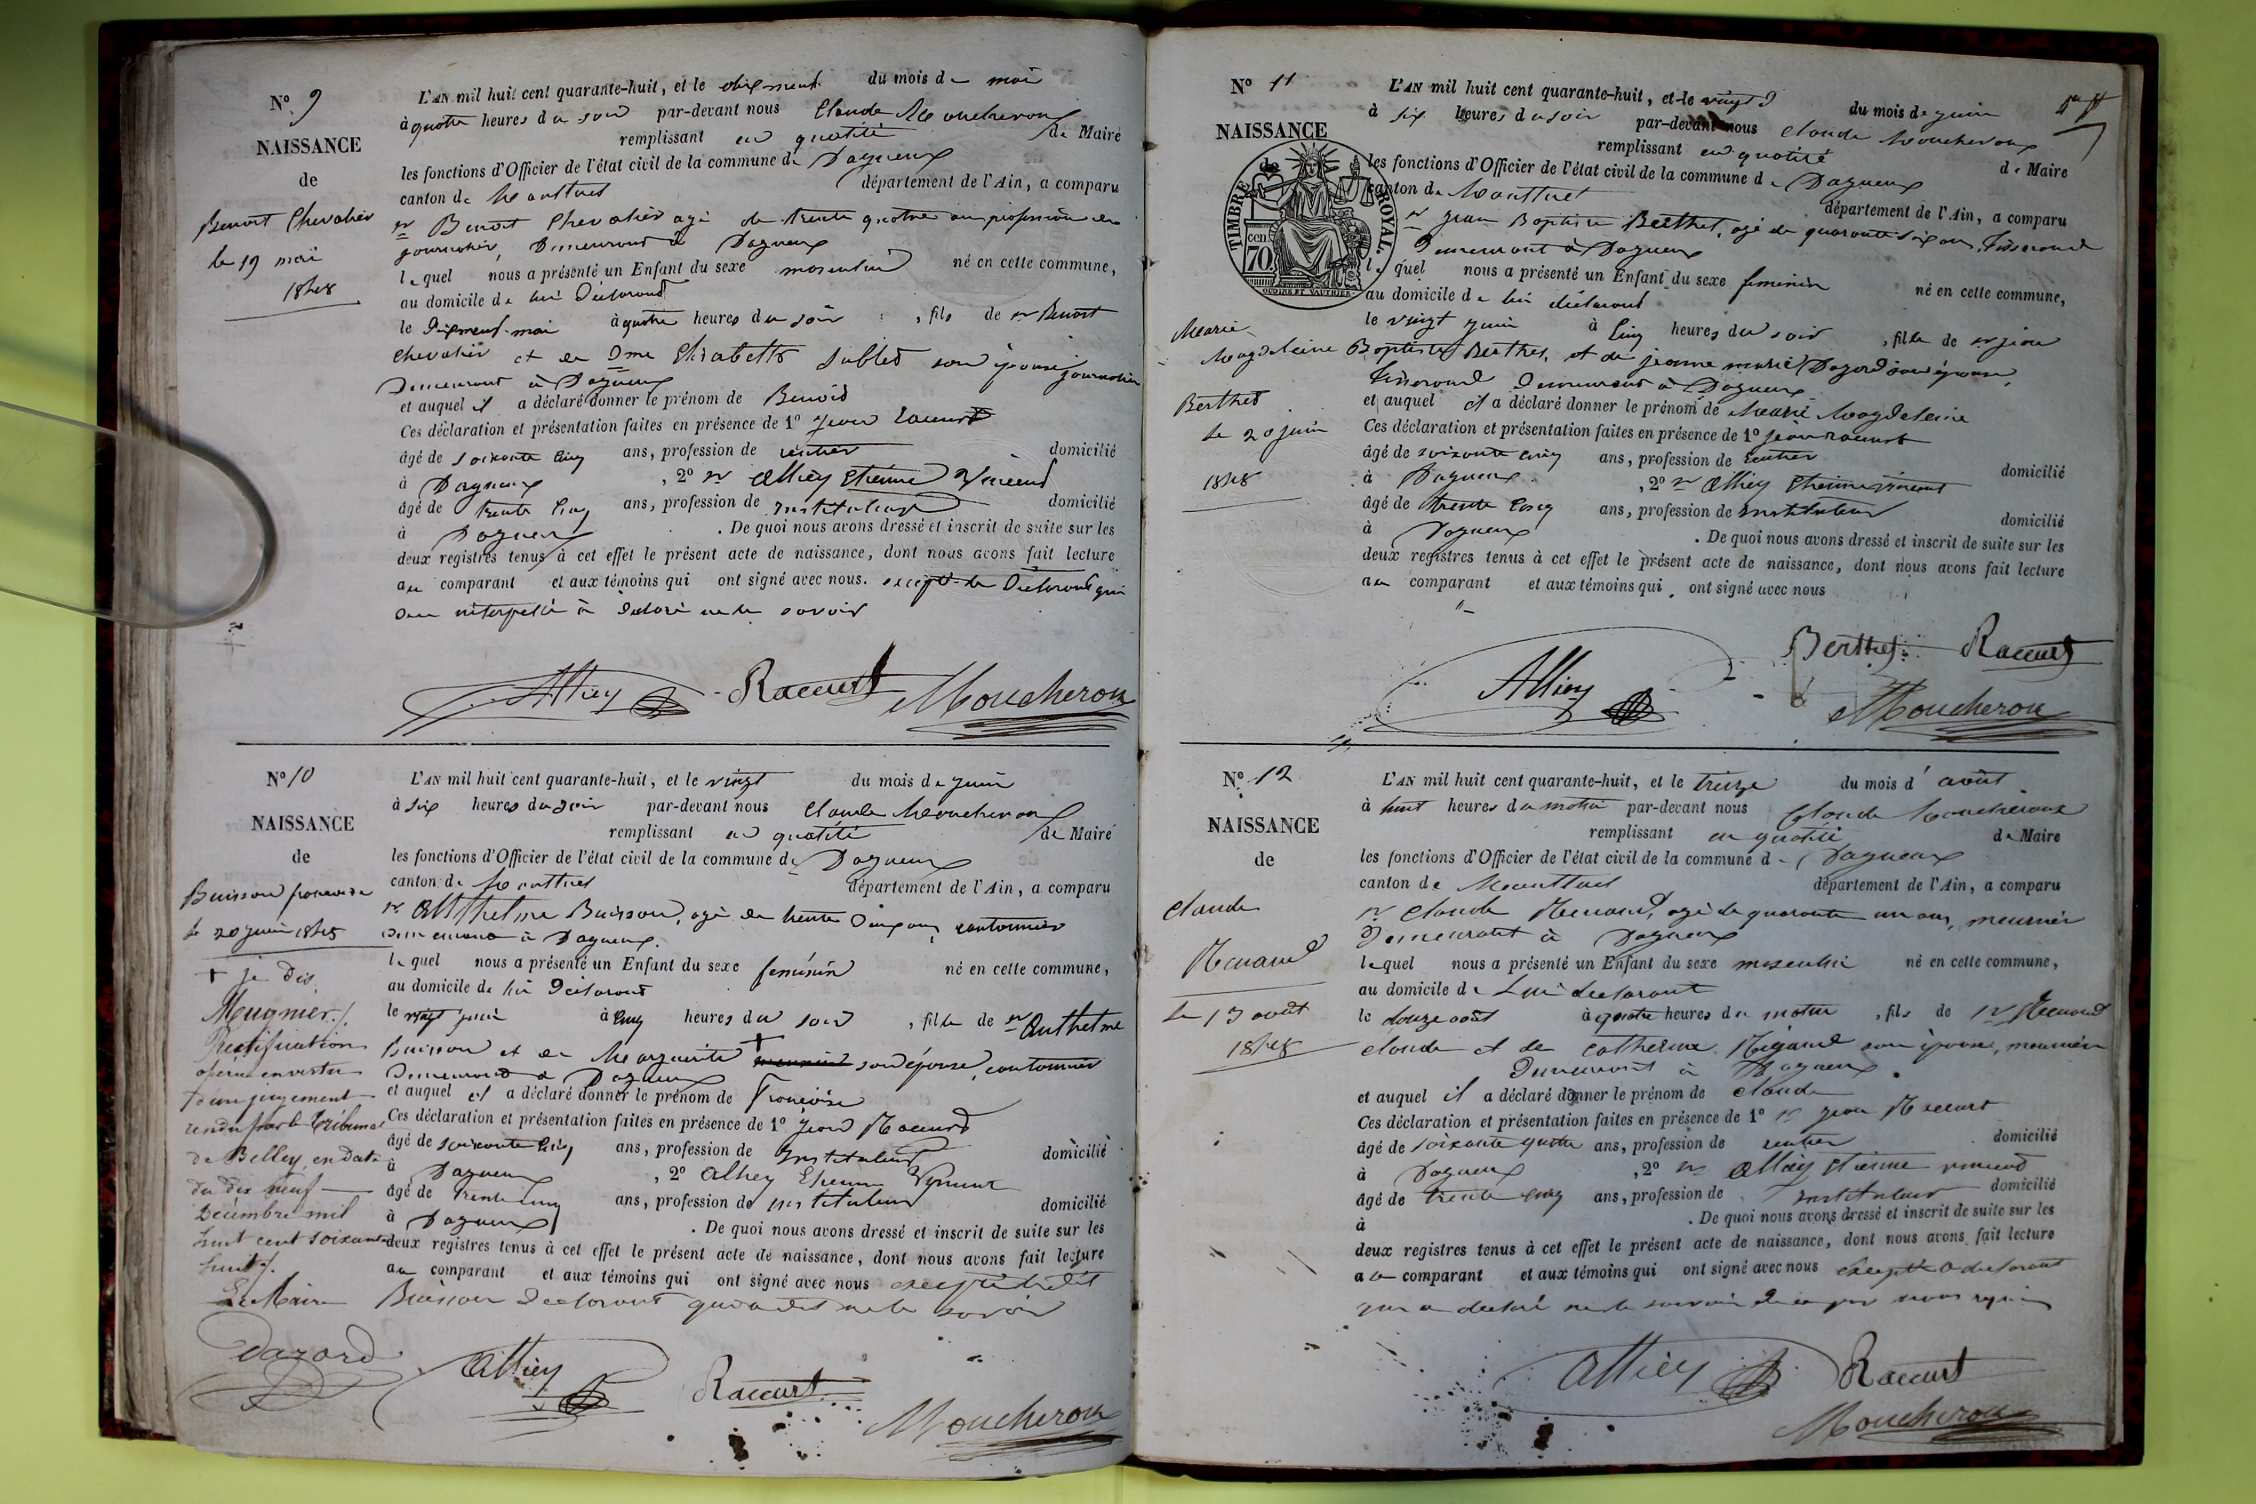 N° 9
NAISSANCE
de
Benoit Chevalier
le 19 mai
1848
L'AN mil huit cent quarante-huit, et le dix neuf du mois de mai
à quatre heures du soir par-devant nous Claude Moucheron
remplissant en qualité de Maire
les fonctions d'Officier de l'état civil de la commune de Dagneux
canton de Montluel département de l'Ain, a comparu
sr Benoit Chevalier agé de trente quatre ans profession de
journalier, Demeurant à Dagneux
lequel nous a présenté un Enfant du sexe masculin né en cette commune,
au domicile de lui Déclarant
le Dix neuf mai à quatre heures du soir, fils de sr Benoit
Chevalier et de Dme Elisabeth Sublet son épouse journalier
Demeurant à Dagneux
et auquel il a déclaré donner le prénom de Benoit
Ces déclaration et présentation faites en présence de 1° Jean Raccurt
âgé de soixante cinq ans, profession de rentier domicilié
à Dagneux, 2° sr Alliey Etienne Vincent
âgé de trente cinq ans, profession de instituteur domicilié
à Dagneux. De quoi nous avons dressé et inscrit de suite sur les
deux registres tenus à cet effet le présent acte de naissance, dont nous avons fait lecture
au comparant et aux témoins qui ont signé avec nous. excepté le Déclarant qui
de ce interpellé à déclaré ne le savoir
Alliey Raccurt Moucheron
N° 10
NAISSANCE
de
Buisson francoise
le 20 juin 1848
+ je dis
Meugnier./.
Rectification
opérée en vertu
d'un jugement
rendu par le Tribunal
de Belley, en date
du dix neuf
Décembre mil
huit cent soixante
huit./.
Le Maire
Dazord
L'AN mil huit cent quarante-huit, et le vingt du mois de juin
à six heures du soir par-devant nous Claude Moucheron
remplissant en qualité de Maire
les fonctions d'Officier de l'état civil de la commune de Dagneux
canton de Montluel département de l'Ain, a comparu
sr Anthelme Buisson, agé de trente cinq ans, cantonnier
demeurant à Dagneux.
lequel nous a présenté un Enfant du sexe feminin né en cette commune,
au domicile de lui Déclarant
le vingt juin à cinq heures du soir, fille de sr Anthelme
Buisson et de Marguerite + meunier son épouse, cantonnier
Demeurant à Dagneux
et auquel il a déclaré donner le prénom de Francoise
Ces déclaration et présentation faites en présence de 1° Jean Raccurt
âgé de soixante cinq ans, profession de Instituteur domicilié
à Dagneux, 2° Alliey Etienne Vincent
âgé de trente cinq ans, profession de instituteur domicilié
à Dagneux. De quoi nous avons dressé et inscrit de suite sur les
deux registres tenus à cet effet le présent acte de naissance, dont nous avons fait lecture
au comparant et aux témoins qui ont signé avec nous excepté le dit
Buisson Declarant qui a dit ne le savoir
Alliey Raccurt Moucheron
N° 11
NAISSANCE
de
TIMBRE ROYAL.
70 cen.
Marie
Magdeleine
Berthet
le 20 juin
1848
L'AN mil huit cent quarante-huit, et le vingt du mois de juin
à six heures du soir par-devant nous Claude Moucheron
remplissant en qualité de Maire
les fonctions d'Officier de l'état civil de la commune de Dagneux
canton de Montluel département de l'Ain, a comparu
sr Jean Baptiste Berthet, agé de quarante six ans, Tisserand
Demeurant à Dagneux
lequel nous a présenté un Enfant du sexe feminin né en cette commune,
au domicile de lui déclarant
le vingt juin à cinq heures du soir, fille de sr jean
Baptiste Berthet, et de jeanne marie Dazord son épouse,
Tisserand Demeurant à Dagneux
et auquel il a déclaré donner le prénom de Marie Magdeleine
Ces déclaration et présentation faites en présence de 1° jean raccurt
âgé de soixante cinq ans, profession de rentier domicilié
à Dagneux, 2° sr Alliey Etienne vincent
âgé de trente cinq ans, profession de instituteur domicilié
à Dagneux. De quoi nous avons dressé et inscrit de suite sur les
deux registres tenus à cet effet le présent acte de naissance, dont nous avons fait lecture
au comparant et aux témoins qui ont signé avec nous
Berthet Raccurt
Alliey Moucheron
N° 12
NAISSANCE
de
Claude
Renard
le 13 août
1848
L'AN mil huit cent quarante-huit, et le treize du mois d'août
à huit heures du matin par-devant nous Claude Moucheron
remplissant en qualité de Maire
les fonctions d'Officier de l'état civil de la commune de Dagneux
canton de Montluel département de l'Ain, a comparu
sr Claude Renard, agé de quarante un ans, meunier
Demeurant à Dagneux
lequel nous a présenté un Enfant du sexe masculin né en cette commune,
au domicile de Lui déclarant
le douze août à quatre heures du matin, fils de sr Renard
claude et de catherine Rigaud son épouse, meunier
Demeurant à Dagneux.
et auquel il a déclaré donner le prénom de claude
Ces déclaration et présentation faites en présence de 1° sr jean Raccurt
âgé de soixante quatre ans, profession de rentier domicilié
à Dagneux, 2° sr Alliey Etienne vincent
âgé de trente cinq ans, profession de instituteur domicilié
à . De quoi nous avons dressé et inscrit de suite sur les
deux registres tenus à cet effet le présent acte de naissance, dont nous avons fait lecture
au comparant et aux témoins qui ont signé avec nous Excepté le déclarant
qui a déclaré ne le savoir de ce par nous requis
Alliey Raccurt
Moucheron